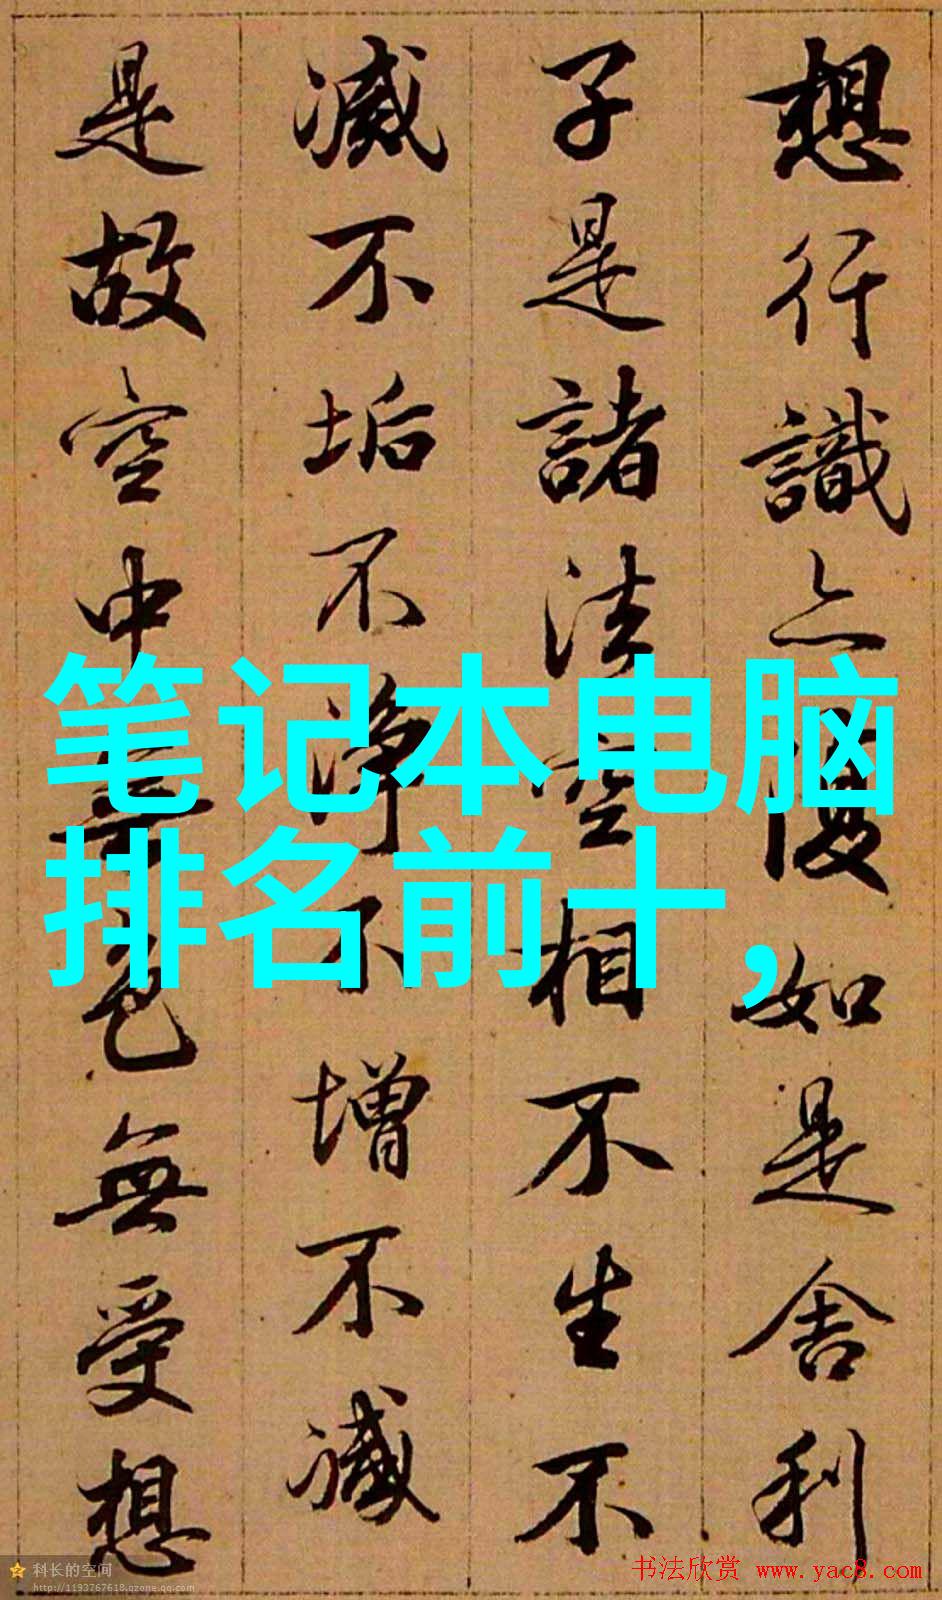 想行識亦復如是舍利
子是諸法空相不生不
滅不垢不淨不增不減
是故空中無色無受想
笔记本电脑
排名前十，
科长的空间
http://1193767618.qzone.qq.com
书法欣赏 www.yac8.com